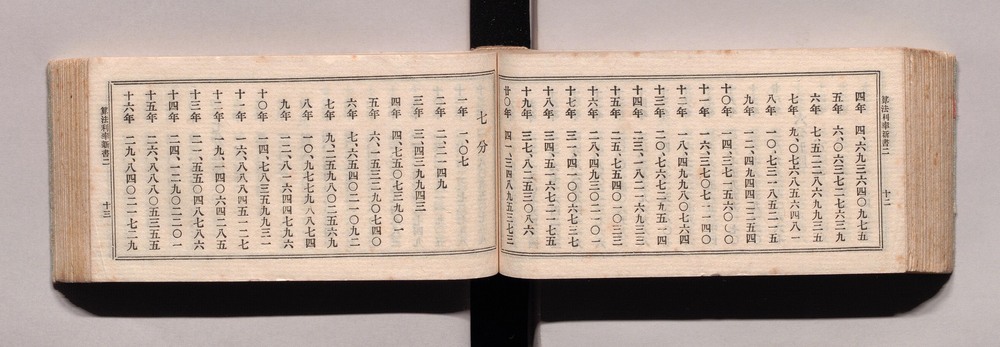 算法利率新書二 十二
四年 四、六九三六四〇九七五
五年 六、〇六三七二七六三九
六年 七、五二二八六九九三五
七年 九、〇七六八五六四八一
八年 一〇、七三一八五二一五
九年 一二、四九四四二二五四
十〇年 一四、三七一五六〇〇〇
十一年 一六、三七〇七一一四〇
十二年 一八、四九九八〇七六四
十三年 二〇、七六七二九五一四
十四年 二三、一八二一六九三二
十五年 二五、七五四〇一〇三三
十六年 二八、四九三〇二一〇一
十七年 三一、四一〇〇六七三七
十八年 三四、五一六七二一七五
十九年 三七、八二五三〇八六
廿〇年 四一、三四八九五三七三
七分
一年 一、〇七
二年 二、二一四九
三年 三、四三九九四三
四年 四、七五〇七三九〇一
五年 六、一五三二九〇七四〇
六年 七、六五四〇二一〇九二
七年 九、二五九八〇二五六九
八年 一〇、九七七九八八七四
九年 一二、八一六四四七九六
十〇年 一四、七八三五九九三一
十一年 一六、八八八四五一二七
十二年 一九、一四〇六四二八五
十三年 二一、五五〇四八七六
十四年 二四、一二九〇二二〇一
十五年 二六、八八八〇五三五五
十六年 二九、八四〇二一七二九
算法利率新書二 十三